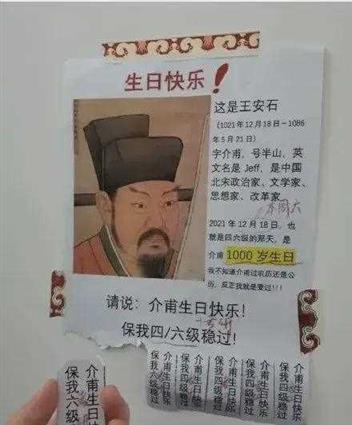 生日快乐！
这是王安石
（1021年12月18日－1086
年5月21日）
字介甫，号半山，英
文名是 Jeff，是中国
北宋政治家、文学家、
思想家、改革家。
2021年12月18日，也
就是四六级的那天，是
介甫 1000 岁生日
我不知道介甫过农历还是公
历，反正我就是要过！！！
请说：介甫生日快乐！
保我四/六级稳过！
考研
介甫生日快乐
保我六级稳过
介甫生日快乐
保我四级稳过
介甫生日快乐
保我四级稳过
介甫生日快乐
保我四级稳过
介甫生日快乐
保我六级稳过
介甫生日快乐
保我六级稳过